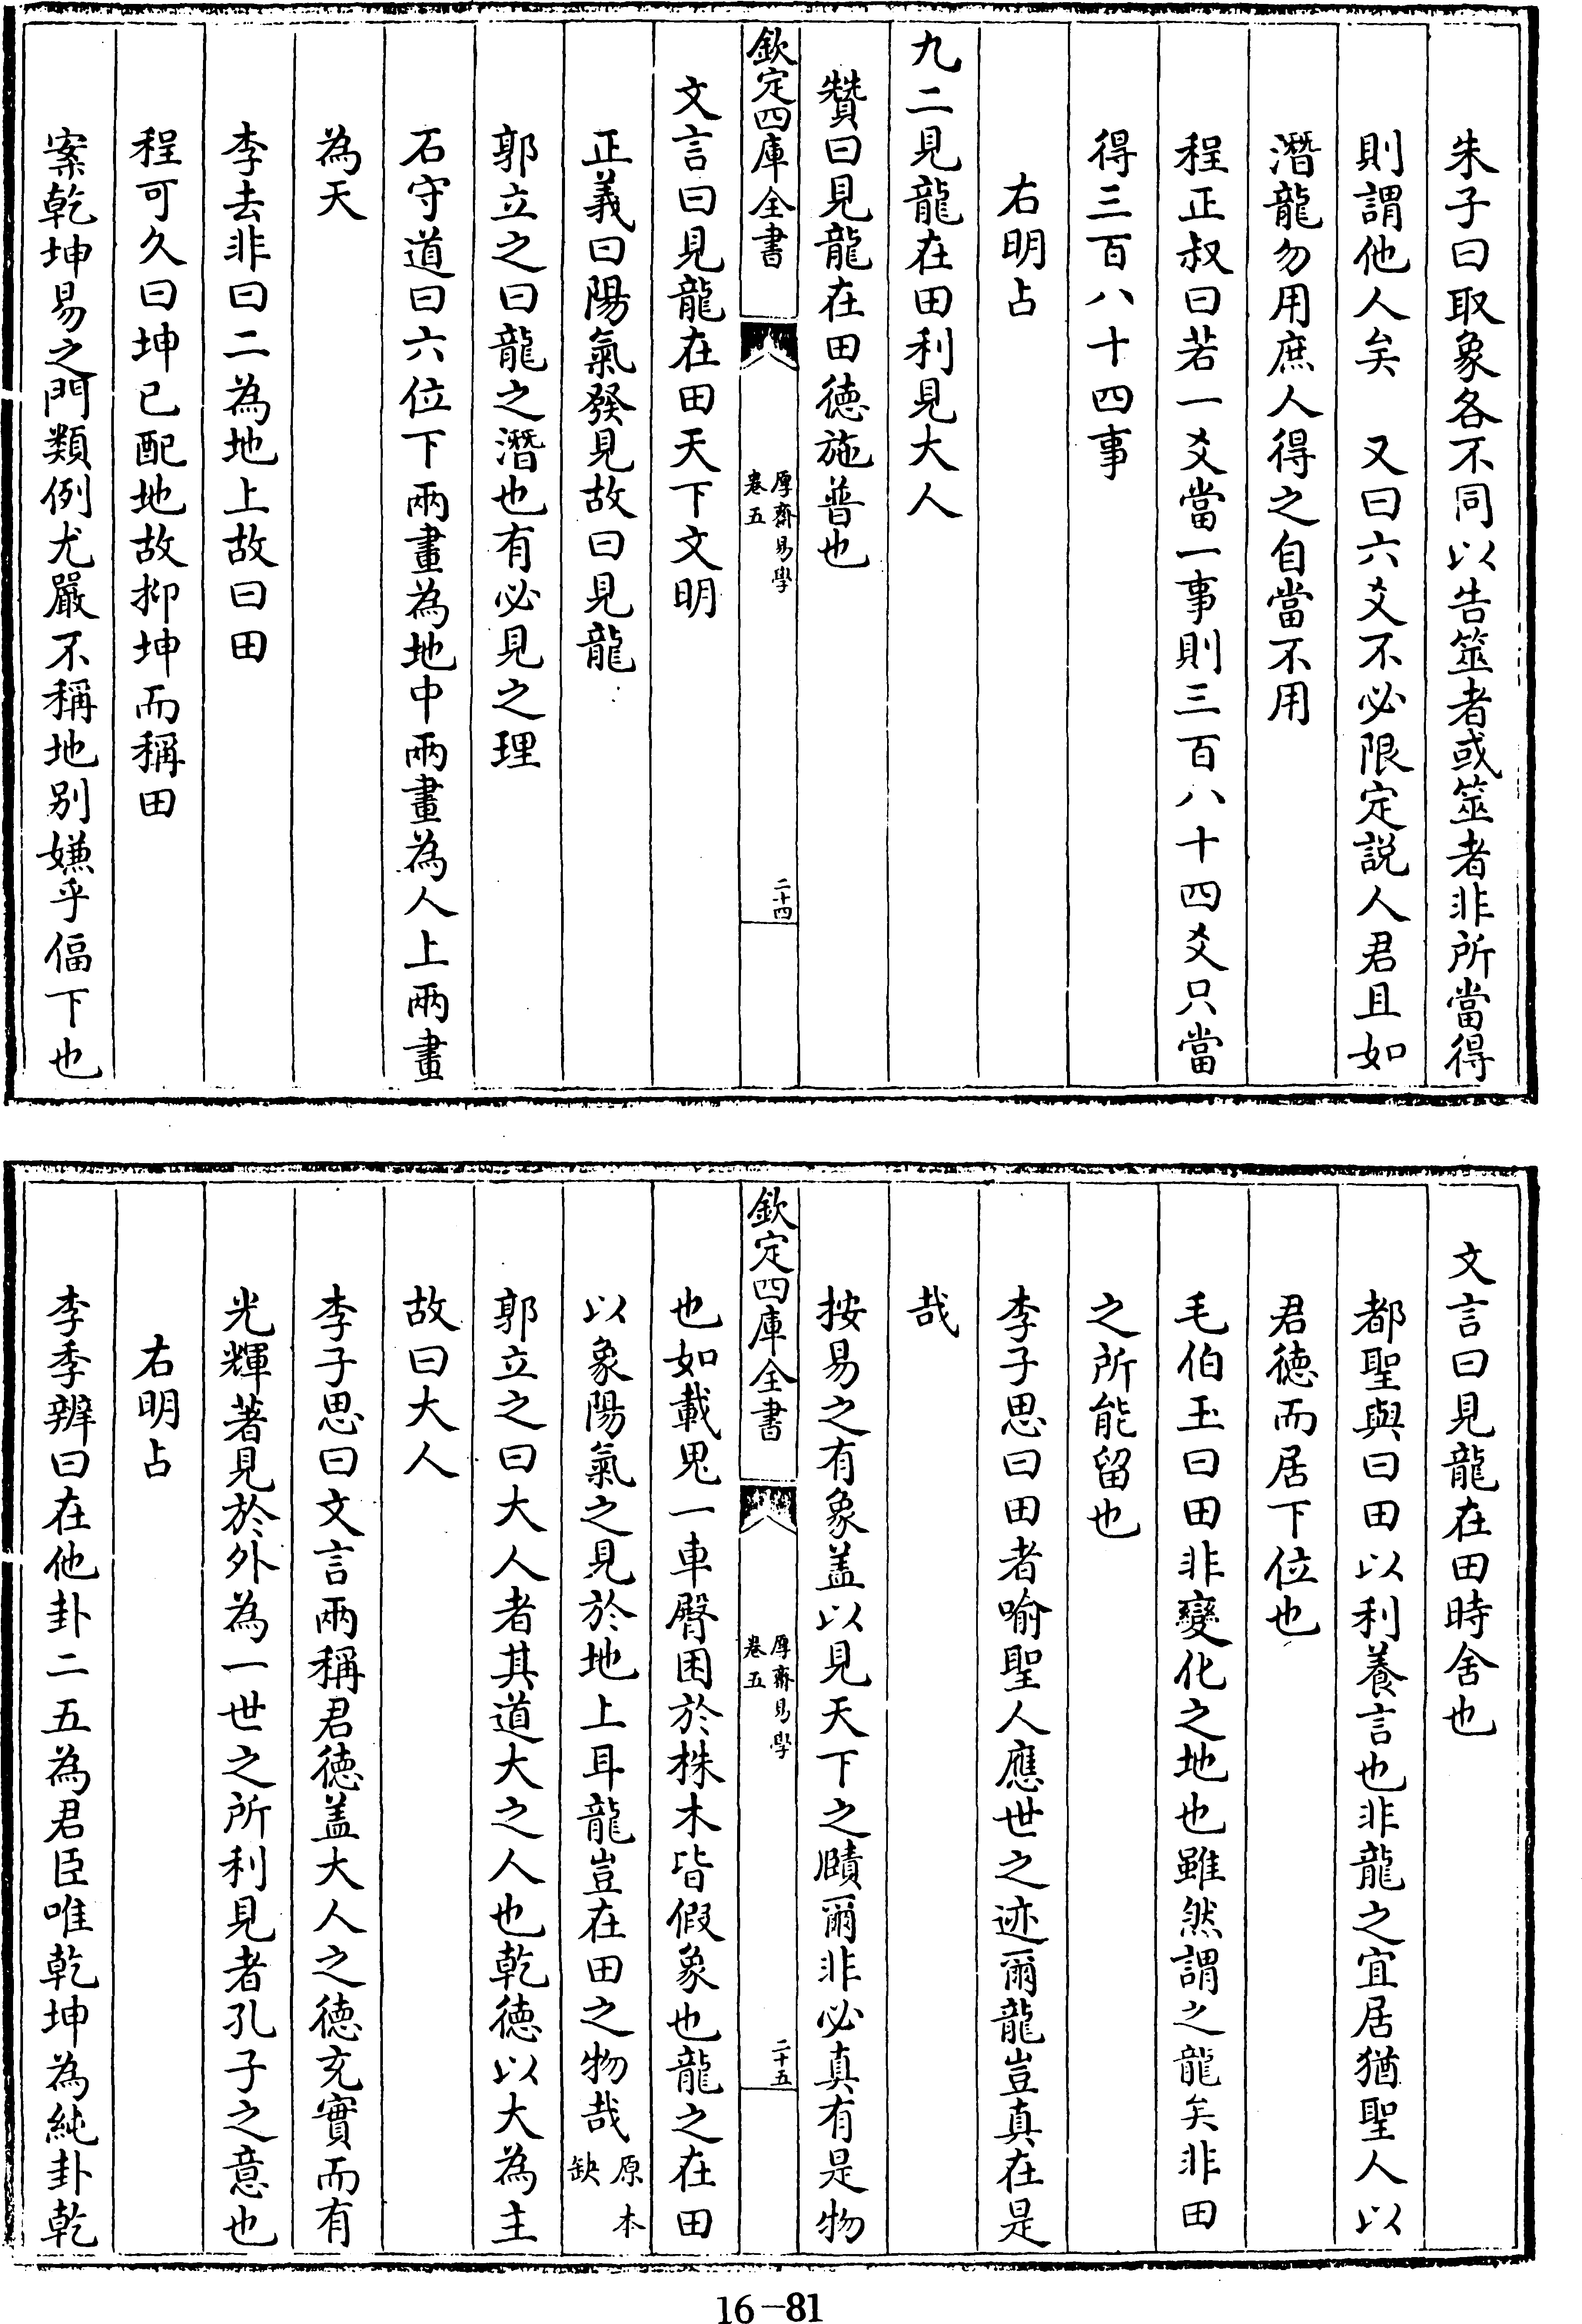 朱子曰取象各不同以告筮者或筮者非所當得
則謂他人矣　又曰六爻不必限定説人君且如
潛龍勿用庶人得之自當不用
程正叔曰若一爻當一事則三百八十四爻只當
得三百八十四事
右明占
九二見龍在田利見大人
贊曰見龍在田德施普也
欽定四庫全書
厚齋易學
卷五
二十四
文言曰見龍在田天下文明
正義曰陽氣發見故曰見龍
郭立之曰龍之潛也有必見之理
石守道曰六位下兩畫為地中兩畫為人上兩畫
為天
李去非曰二為地上故曰田
程可久曰坤已配地故抑坤而稱田
案乾坤易之門類例尤嚴不稱地别嫌乎偪下也
文言曰見龍在田時舍也
都聖與曰田以利養言也非龍之宜居猶聖人以
君德而居下位也
毛伯玉曰田非變化之地也雖然謂之龍矣非田
之所能留也
李子思曰田者喻聖人應世之迹爾龍豈真在是
哉
按易之有象盖以見天下之賾爾非必真有是物
欽定四庫全書
厚齋易學
卷五
二十五
也如載鬼一車臀困於株木皆假象也龍之在田
以象陽氣之見於地上耳龍豈在田之物哉原本缺
郭立之曰大人者其道大之人也乾德以大為主
故曰大人
李子思曰文言兩稱君德盖大人之德充實而有
光輝著見於外為一世之所利見者孔子之意也
右明占
李季辨曰在他卦二五為君臣唯乾坤為純卦乾
16-81